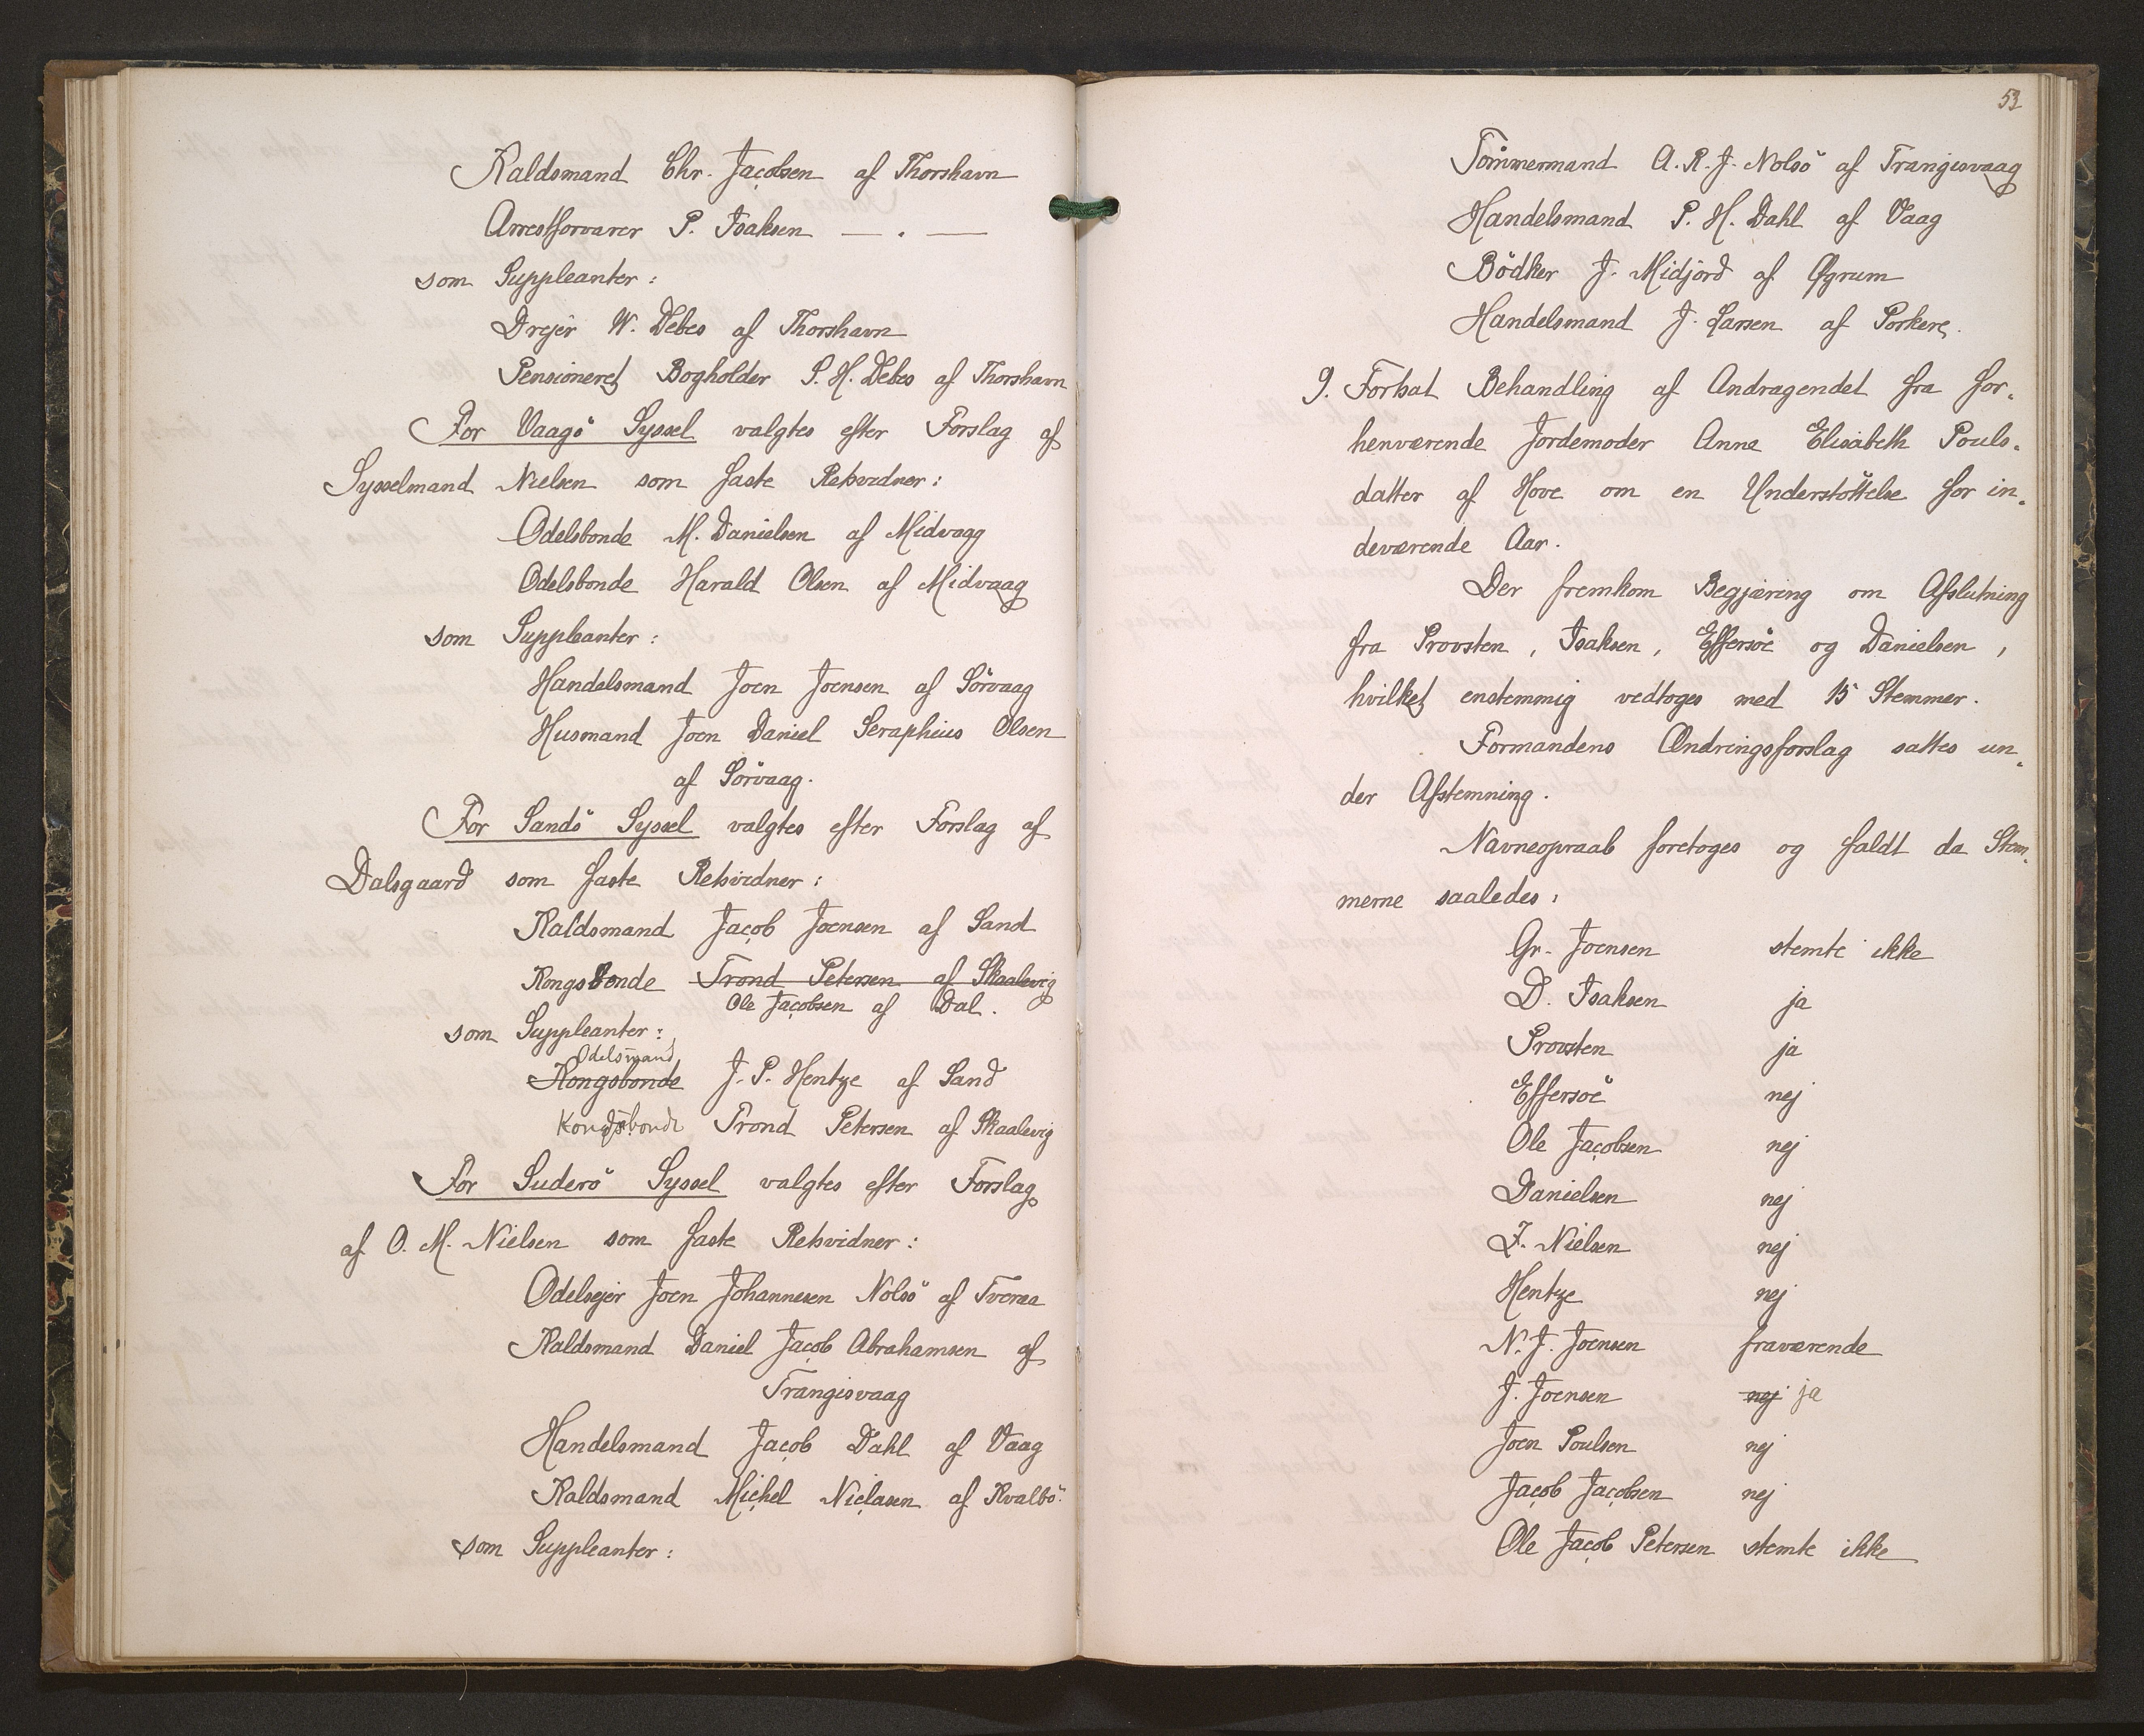 Raldsmand Chr. Jacobsen af Thorshavn
Arrestforvarer P. Isaksen — . —
som Suppleanter:
Drejer W. Debes af Thorshavn
Pensioneret Bogholder P. H. Debes af Thorshavn
For Vaagö Syssel valgtes efter Forslag af
Sysselmand Nielsen som faste Retsvidner:
Odelsbonde M. Danielsen af Midvaag
Odelsbonde Harald Olsen af Midvaag
som Suppleanter:
Handelsmand Joen Joensen af Sörvaag
Husmand Joen Daniel Seraphius Olsen
af Sörvaag.
For Sandö Syssel valgtes efter Forslag af
Dalsgaard som faste Retsvidner:
Raldsmand Jacob Joensen af Sand
Kongsbonde Trond Petersen af Skaalevig
Ole Jacobsen af Dal.
som Suppleanter:
Odelsmand
Kongsbonde J. P. Hentze af Sand
Kongsbonde Trond Petersen af Skaalevig
For Suderö Syssel valgtes efter Forslag
af O. M. Nielsen som faste Retsvidner:
Odelsejer Joen Johannesen Nolsö af Tveraa
Raldsmand Daniel Jacob Abrahamsen af
Trangisvaag
Handelsmand Jacob Dahl af Vaag
Raldsmand Michel Niclasen af Kvalbö.
som Suppleanter:
53
Tömmermand A. R. J. Nolsö af Trangisvaag
Handelsmand P. H. Dahl af Vaag
Bödker J. Midjord af Øgrum
Handelsmand J. Larsen af Porkere.
9. Fortsat Behandling af Andragendet fra for-
henværende Jordemoder Anna Elisabeth Pouls-
datter af Hove om en Understöttelse for in-
deværende Aar.
Der fremkom Begjæring om Afslutning
fra Provsten, Isaksen, Effersöe og Danielsen,
hvilket enstemmig vedtoges med 15 Stemmer.
Formandens Ændringsforslag sattes un-
der Afstemning.
Navneopraab foretoges og faldt da Stem-
merne saaledes:
Gr. Joensen stemte ikke
D. Isaksen ja
Provsten ja
Effersöe nej
Ole Jacobsen nej
Danielsen nej
J. Nielsen nej
Hentze nej
N. J. Joensen fraværende
J. Joensen nej ja
Joen Poulsen nej
Jacob Jacobsen nej
Ole Jacob Petersen stemte ikke